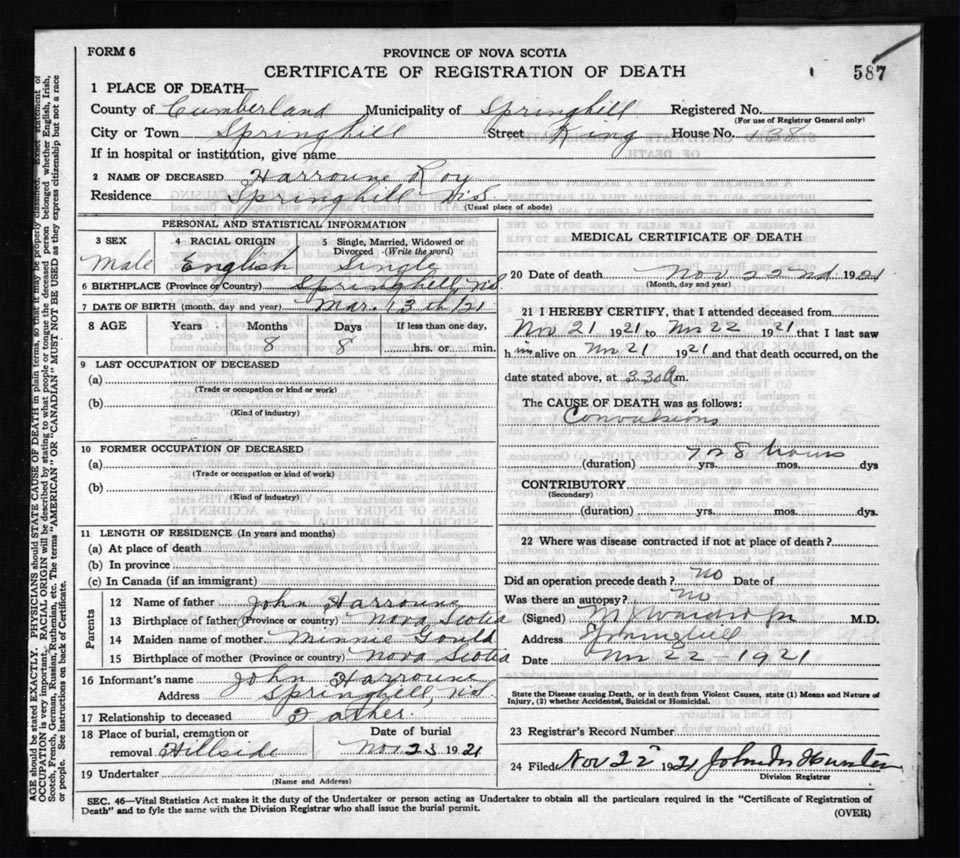 FORM 6
PROVINCE OF NOVA SCOTIA
CERTIFICATE OF REGISTRATION OF DEATH
587
1 PLACE OF DEATH—
County of Cumberland Municipality of Springhill Registered No.
(For use of Registrar General only)
City or Town Springhill Street King House No. 138
If in hospital or institution, give name
2 NAME OF DECEASED Harroune Roy
Residence Springhill N.S.
(Usual place of abode)
PERSONAL AND STATISTICAL INFORMATION
3 SEX 4 RACIAL ORIGIN 5 Single, Married, Widowed or Divorced (Write the word)
Male English Single
6 BIRTHPLACE (Province or Country) Springhill, N.S.
7 DATE OF BIRTH (month, day and year) Mar. 13th/21
8 AGE Years Months Days If less than one day,
8 8 hrs. or min.
9 LAST OCCUPATION OF DECEASED
(a)
(Trade or occupation or kind or work)
(b)
(Kind of industry)
10 FORMER OCCUPATION OF DECEASED
(a)
(Trade or occupation or kind of work)
(b)
(Kind of industry)
11 LENGTH OF RESIDENCE (In years and months)
(a) At place of death
(b) In province
(c) In Canada (if an immigrant)
Parents
12 Name of father John Harroune
13 Birthplace of father (Province or country) Nova Scotia
14 Maiden name of mother Minnie Gould
15 Birthplace of mother (Province or country) Nova Scotia
16 Informant's name John Harroune
Address Springhill, N.S.
17 Relationship to deceased Father.
18 Place of burial, cremation or Date of burial
removal Hillside Nov 23 1921
19 Undertaker
(Name and Address)
MEDICAL CERTIFICATE OF DEATH
20 Date of death Nov 22nd 1921
(Month, day and year)
21 I HEREBY CERTIFY, that I attended deceased from
Nov 21 1921 to Nov 22 1921 that I last saw
him alive on Nov 21 1921 and that death occurred, on the
date stated above, at 3.30 a m.
The CAUSE OF DEATH was as follows:
Convulsions
7 or 8 hours
(duration) yrs. mos. dys
CONTRIBUTORY
(Secondary)
(duration) yrs. mos. dys.
22 Where was disease contracted if not at place of death?
Did an operation precede death? no Date of
Was there an autopsy? no
(Signed) M.D.
Address Springhill
Date Nov 22 - 1921
State the Disease causing Death, or in death from Violent Causes, state (1) Means and Nature of
Injury, (2) whether Accidental, Suicidal or Homicidal.
23 Registrar's Record Number
24 Filed Nov 22 1921 John M Hunter
Division Registrar
SEC. 46—Vital Statistics Act makes it the duty of the Undertaker or person acting as Undertaker to obtain all the particulars required in the "Certificate of Registration of
Death" and to fyle the same with the Division Registrar who shall issue the burial permit.
(OVER)
AGE should be stated EXACTLY. PHYSICIANS should STATE CAUSE OF DEATH in plain terms, so that it may be properly classified. Exact statement of
OCCUPATION is very important. RACIAL ORIGIN will be described by stating to what people or tongue the deceased person belonged whether English, Irish,
Scotch, French, German, Russian, Ruthenian, etc. The terms "AMERICAN" OR "CANADIAN" MUST NOT BE USED as they express citizenship but not a race
or people. See instructions on back of Certificate.